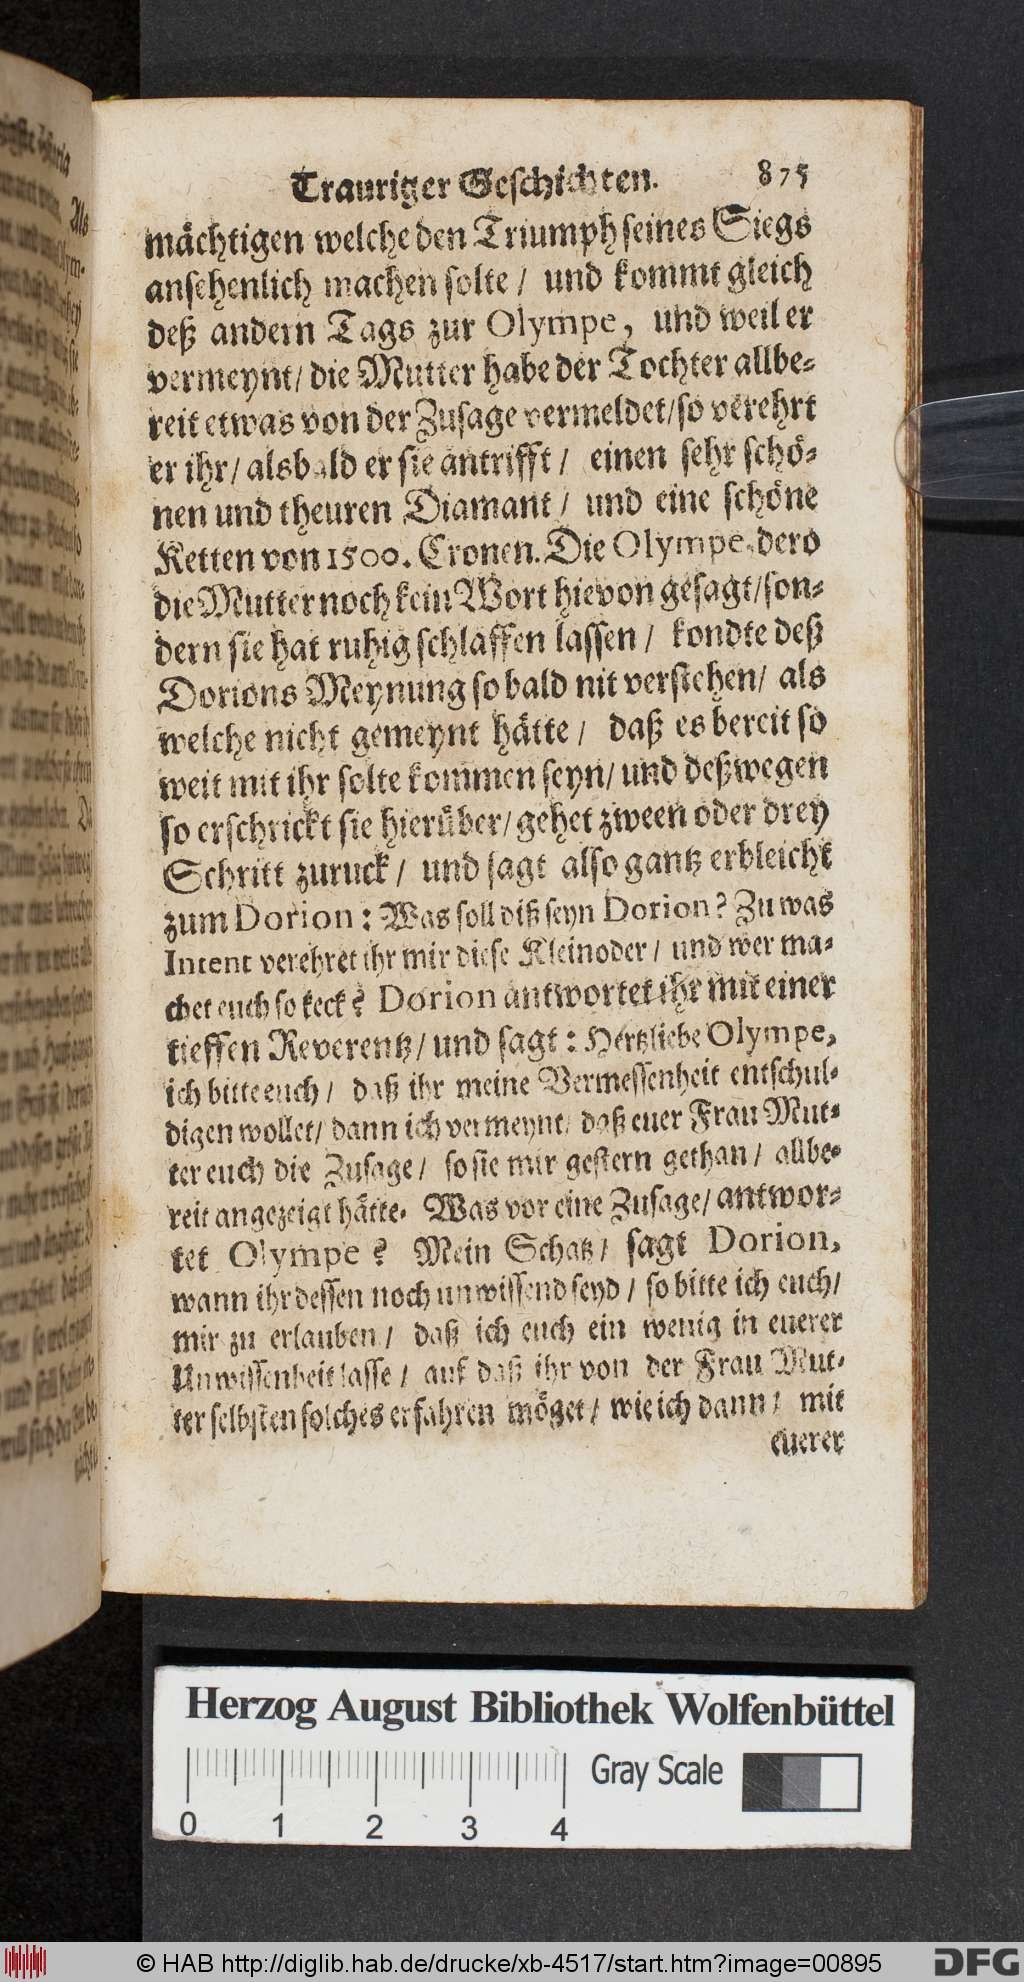 Trauriger Geschichten. 875
mächtigen welche den Triumph seines Siegs
ansehenlich machen solte / und kommt gleich
deß andern Tags zur Olympe, und weil er
vermeynt / die Mutter habe der Tochter allbe-
reit etwas von der Zusage vermeldet / so verehrt
er ihr / alsbald er sie antrifft / einen sehr schö-
nen und theuren Diamant / und eine schöne
Ketten von 1500. Cronen. Die Olympe, dero
die Mutter noch kein Wort hievon gesagt / son-
dern sie hat ruhig schlaffen lassen / kondte deß
Dorions Meynung so bald nit verstehen / als
welche nicht gemeynt hätte / daß es bereit so
weit mit ihr solte kommen seyn / und deßwegen
so erschrickt sie hierüber / gehet zween oder drey
Schritt zuruck / und sagt also gantz erbleicht
zum Dorion: Was soll diß seyn Dorion? Zu was
Intent verehret ihr mir diese Kleinoder / und wer ma-
chet euch so keck? Dorion antwortet ihr mit einer
tieffen Reverentz / und sagt: Hertzliebe Olympe,
ich bitte euch / daß ihr meine Vermessenheit entschul-
digen wollet / dann ich vermeynt / daß euer Frau Mut-
ter euch die Zusage / so sie mir gestern gethan / allbe-
reit angezeigt hätte. Was vor eine Zusage / antwor-
tet Olympe? Mein Schatz / sagt Dorion,
wann ihr dessen noch unwissend seyd / so bitte ich euch /
mir zu erlauben / daß ich euch ein wenig in euerer
Unwissenheit lasse / auf daß ihr von der Frau Mut-
ter selbsten solches erfahren möget / wie ich dann / mit
euerer
Herzog August Bibliothek Wolfenbüttel
Gray Scale
0 1 2 3 4
© HAB http://diglib.hab.de/drucke/xb-4517/start.htm?image=00895
DFG